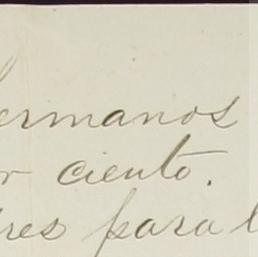 hermanos
or ciento.
res para l